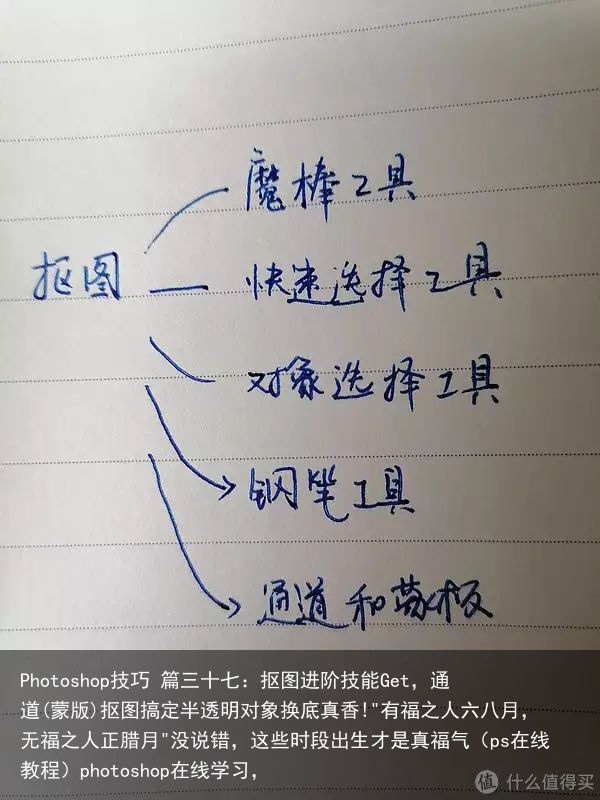 魔棒工具
抠图
快速选择工具
对象选择工具
钢笔工具
通道和蒙板
Photoshop技巧 篇三十七：抠图进阶技能Get，通
道(蒙版)抠图搞定半透明对象换底真香!"有福之人六八月，
无福之人正腊月"没说错，这些时段出生才是真福气（ps在线
教程）photoshop在线学习，
值 什么值得买